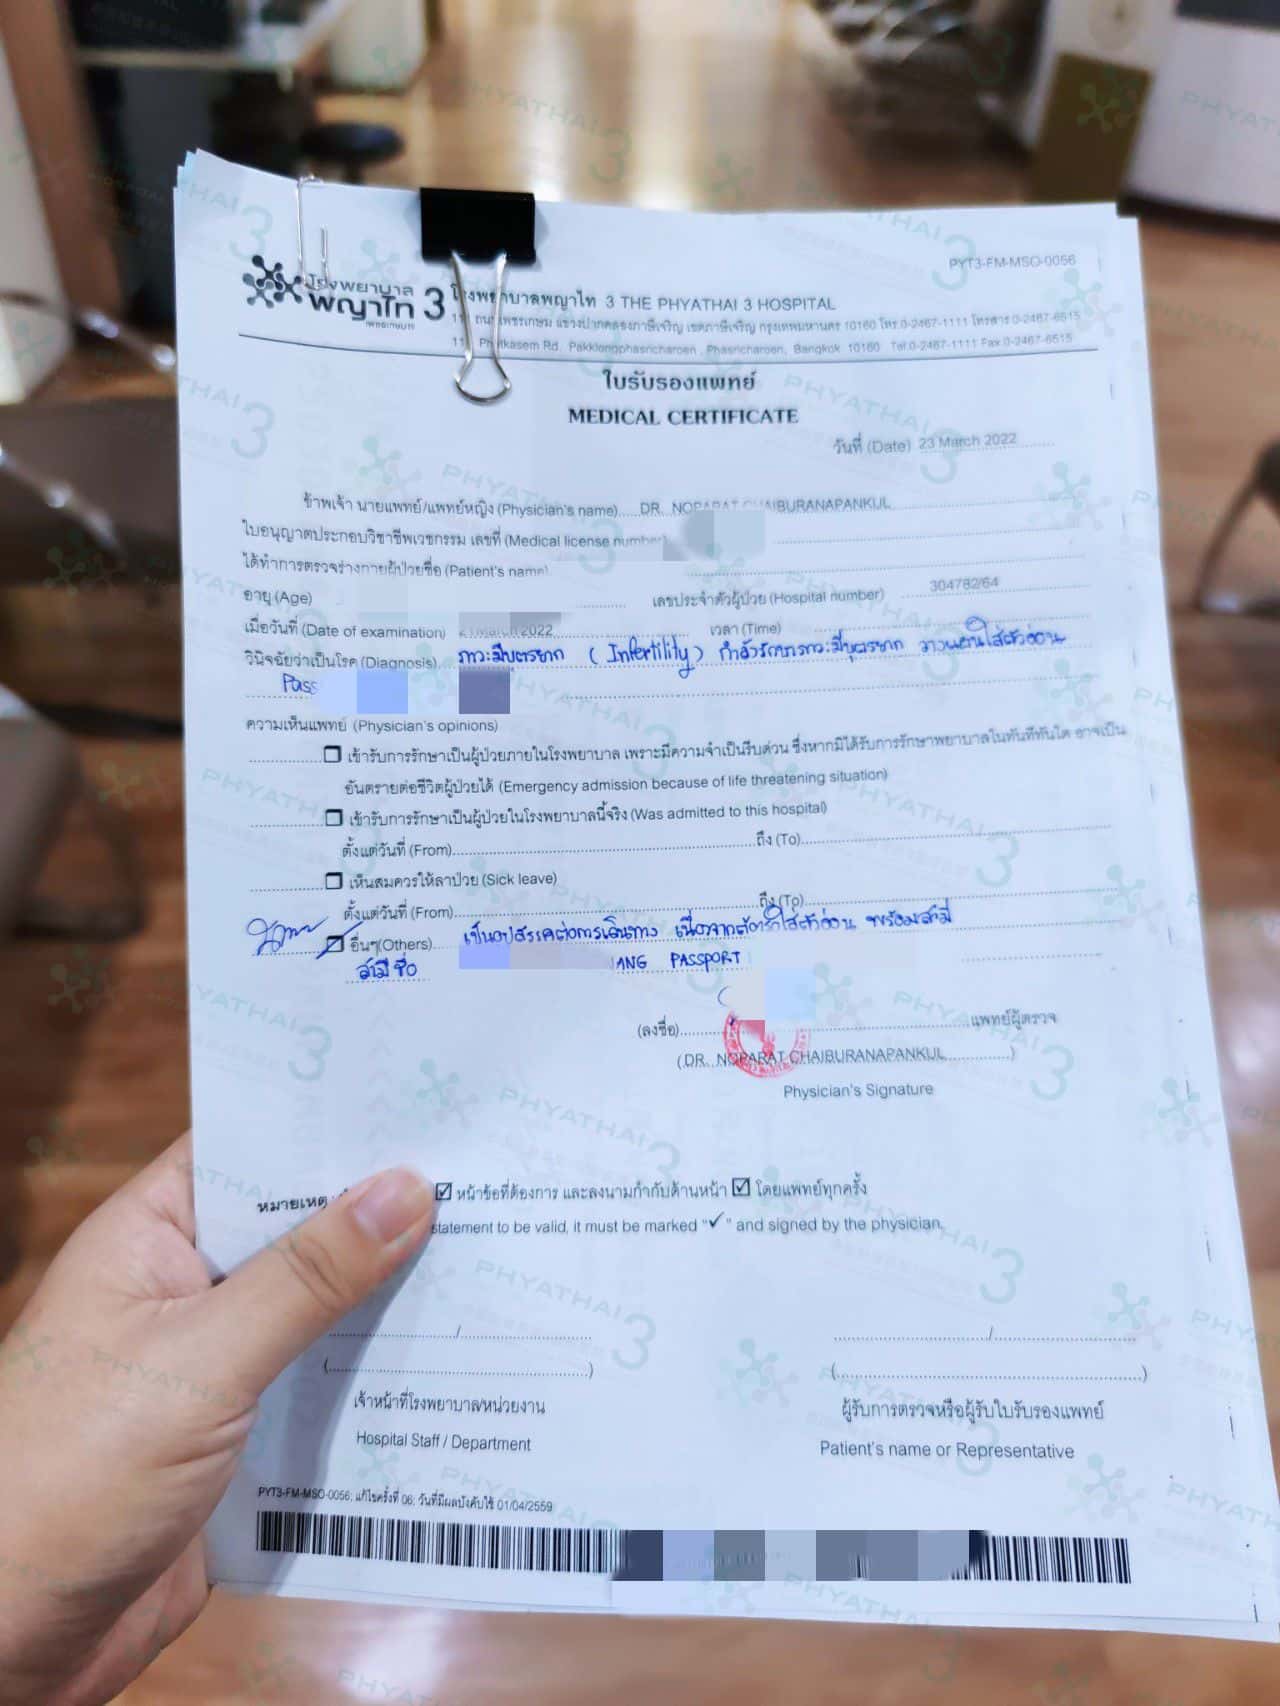 PYT3-FM-MSO-0056
โรงพยาบาล
พญาไท 3
เพชรเกษม
โรงพยาบาลพญาไท 3 THE PHYATHAI 3 HOSPITAL
ถนนเพชรเกษม แขวงปากคลองภาษีเจริญ เขตภาษีเจริญ กรุงเทพมหานคร 10160 โทร.0-2467-1111 โทรสาร 0-2467-6515
Phetkasem Rd. Pakklongphasricharoen, Phasricharoen, Bangkok 10160 Tel.0-2467-1111 Fax.0-2467-6515
ใบรับรองแพทย์
MEDICAL CERTIFICATE
วันที่ (Date) 23 March 2022
ข้าพเจ้า นายแพทย์/แพทย์หญิง (Physician's name) DR. NOPARAT CHAIBURANAPANKUL
ใบอนุญาตประกอบวิชาชีพเวชกรรม เลขที่ (Medical license number)
ได้ทำการตรวจร่างกายผู้ป่วยชื่อ (Patient's name)
อายุ (Age) เลขประจำตัวผู้ป่วย (Hospital number) 304782/64
เมื่อวันที่ (Date of examination) 2022 เวลา (Time)
วินิจฉัยว่าเป็นโรค (Diagnosis) ภาวะมีบุตรยาก (Infertility) กำลังรักษาภาวะมีบุตรยาก วางแผนใส่ตัวอ่อน
Pass
ความเห็นแพทย์ (Physician's opinions)
เข้ารับการรักษาเป็นผู้ป่วยภายในโรงพยาบาล เพราะมีความจำเป็นรีบด่วน ซึ่งหากมิได้รับการรักษาพยาบาลในทันทีทันใด อาจเป็น
อันตรายต่อชีวิตผู้ป่วยได้ (Emergency admission because of life threatening situation)
เข้ารับการรักษาเป็นผู้ป่วยในโรงพยาบาลนี้จริง (Was admitted to this hospital)
ตั้งแต่วันที่ (From) ถึง (To)
เห็นสมควรให้ลาป่วย (Sick leave)
ตั้งแต่วันที่ (From) ถึง (To)
อื่นๆ(Others) เป็นอุปสรรคต่อการเดินทาง เนื่องจากต้องใส่ตัวอ่อน พร้อมสามี
สามีชื่อ ANG PASSPORT
(ลงชื่อ) แพทย์ผู้ตรวจ
(DR. NOPARAT CHAIBURANAPANKUL)
Physician's Signature
หมายเหตุ ☑ หน้าข้อที่ต้องการ และลงนามกำกับด้านหน้า ☑ โดยแพทย์ทุกครั้ง
statement to be valid, it must be marked "✓" and signed by the physician.
เจ้าหน้าที่โรงพยาบาล/หน่วยงาน ผู้รับการตรวจหรือผู้รับใบรับรองแพทย์
Hospital Staff / Department Patient's name or Representative
PYT3-FM-MSO-0056; แก้ไขครั้งที่ 06; วันที่มีผลบังคับใช้ 01/04/2559